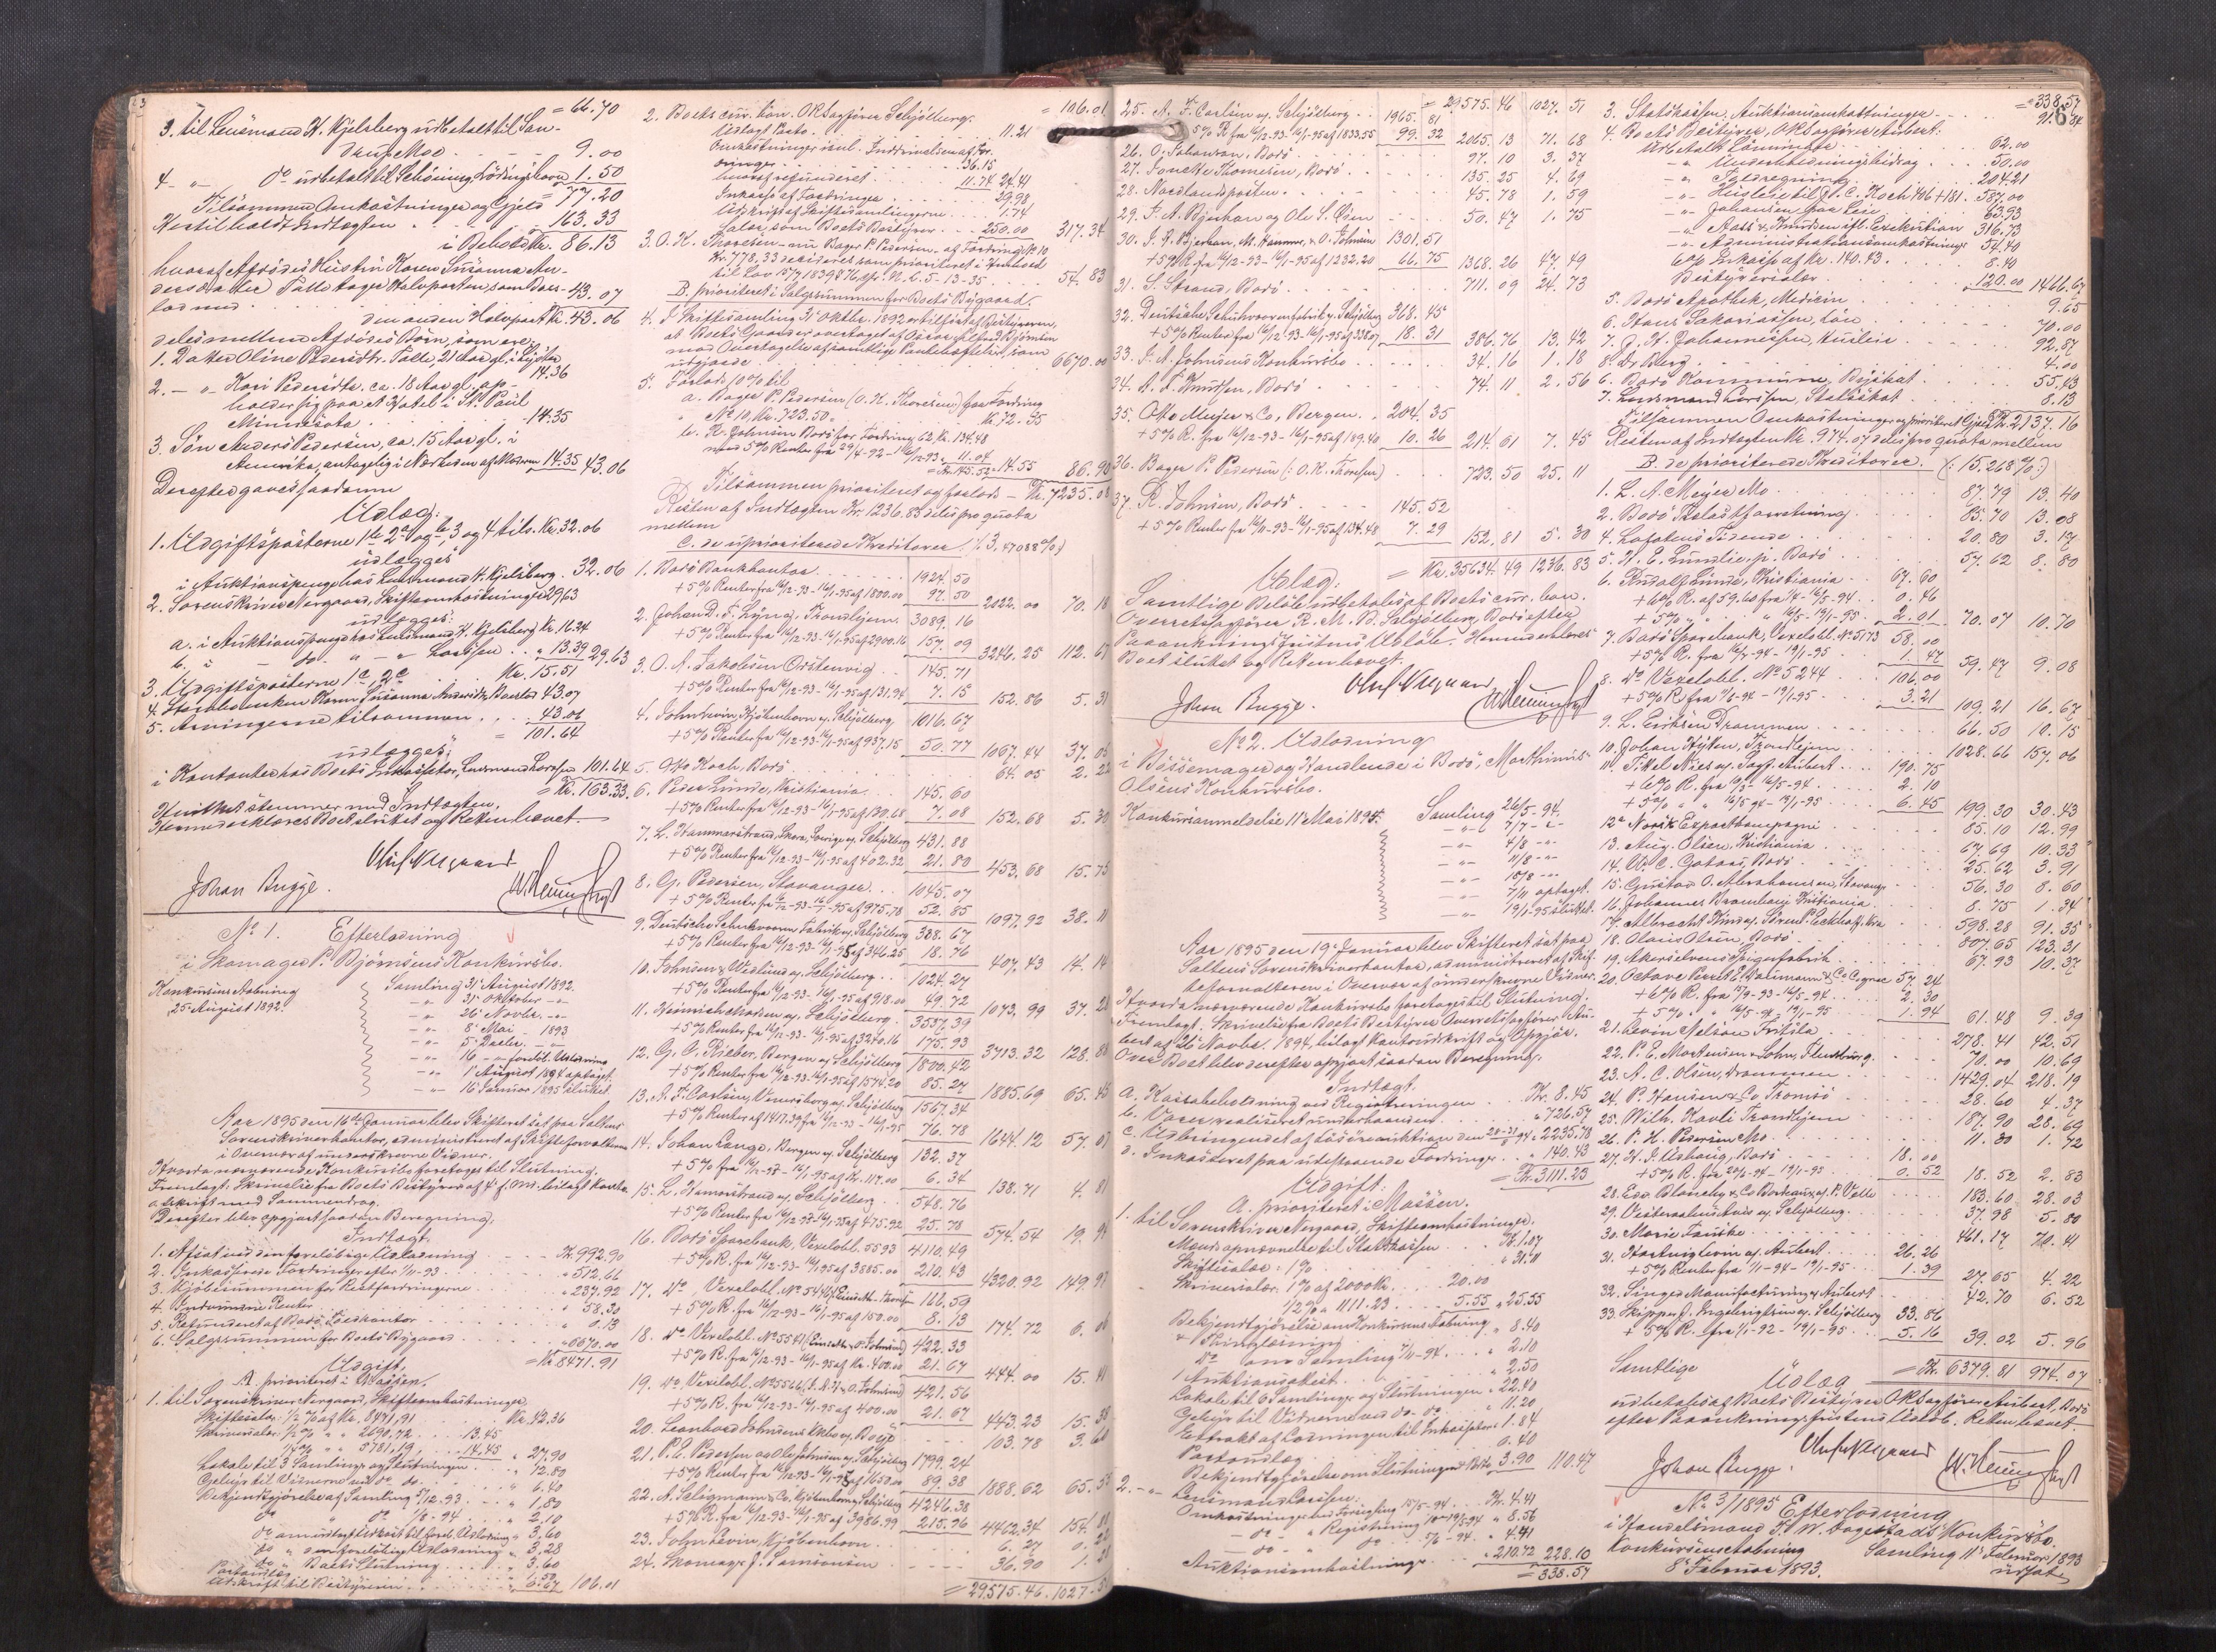 = 66.70
3. til Lensmand H. Kjelsberg udbetalt til San-
drup Moe - - - 9.00
4 - " - do udbetalt til Schøning, Lødingshavn 1.50
= 77.20
Tilsammen Omkostninger og Gjeld
Nestilholdt Indtægten . . 163.33
i Behold Kr. 86.13
hvoraf Afdødes Hustru Karen Susanna An-
dersdatter Palle tager Halvparten som Boes-
lod med . . . 43.07
den anden Halvpart Kr. 43.06
deles mellem Afdødes Børn, som ere,
1. Datter Oline Pedersdtr. Palle, 21 Aar gl.
14.36
2. - " - Kari Pedersdtr. ca. 18 Aar gl. op-
holder sig paa et Hotel i St. Paul
Minnesota . . . 14.35
3. Søn Anders Pedersen, ca. 15 Aar gl. i
Amerika, antagelig i Nærheden af Moderen 14.35 43.06
Derefter gaves saadann
Udlæg:
1. Udgiftsposterne 1te 2den og 3 og 4 tils. Kr. 32.06
udlægges
i Auktionspenge hos Lensmand H. Kjelsberg. 32.06
2. Sorenskriver Nergaard, Skifteomkostninger 29.63
udlægges:
a. i Auktionspenge hos Lensmand H. Kjelsberg Kr. 16.24
b. i - do. " - " Larssen . . " 13.39 29.63
3. Udgiftsposterne 1a, 2a Kr. 15.51
4. Stervboenken Karen Susanna Andersdtr. Boeslod 43.07
5. Arvingerne tilsammen . . 43.06
= 101.64
udlægges:
i Kontanter hos Boets Inkassator, Lensmand Larssen 101.64
= Kr. 163.33
Hvilket stemmer med Indtægten.
Hermed erklæres Boet sluttet og Retten hævet.
Johan Bugge.
No 1. Efterlodning
i Skomager P. Bjørnsens Konkursbo.
Konkursens Aabning
25 August 1892.
Samling 31 August 1892.
- " - 31 Oktober - " -
- " - 26 Novbr. - " -
- " - 8 Mai - 1893
- " - 5 Decbr. - " -
- " - 16 - " - foreløb. Udlodning
- " - 1 August 1894 optaget.
- " - 16 Januar 1895 sluttet.
Aar 1895 den 16de Januar blev Skifteret sat paa Saltens
Sorenskriverkontor, administreret af Skifteforvalteren
i Overvær af underskrevne Vidner.
Hvorda nærværende Konkursbo foretoges til Slutning.
Fremlagt. Skrivelse fra Boets Bestyrer af 4 f. M. bilagt Konto
udskrift med Sammendrag.
Derefter blev opgjort saadan Beregning;
Indtægt.
1. Afsat ved den foreløbige Udlodning . . Kr. 992.90
2. Inkasserede Fordringer efter 1/11-93 . . " 512.66
3. Kjøbesummen for Restfordringerne . . " 237.92
4. Indvundne Renter . . " 58.30
5. Refunderet af Bodø Toldkontor . . " 0.13
6. Salgssummen for Boets Bygaard . . " 6670.00
= Kr. 8471.91
Udgift.
A. prioriteret i Massen.
1. til Sorenskriver Nergaard, Skifteomkostninger,
Skiftesalær 1/2 % af Kr. 8471,91 . . Kr. 42.36
Skriversalær 1/2 % " " 2690.72 . . 13.45
1/4 % " " 5781,19 . . 14.45 " 27.90
Lokale til 3 Samlinger og Slutningen . . " 12.80
Gebyr til Vidnerne ved do do. . . " 6.40
Bekjendtgjørelse af Samling 5/12.93 . . " 1.80
do " do 1/8-94 . . " 2.10
do om udlagt Udkast til forel. Udlodning " 3.60
do " den foreløbige Udlodning . . " 3.28
do " Boets Slutning . . " 3.60
Portoudlæg . . " 1.50
Udskrift til Bestyreren . . " 0.67 106.01
= 106.01
2. Boets cur. bon. OR Sagfører Schjølberg.
Udlagt Porto . . 11.21
Omkostninger isml. Inddrivelsen af For-
dringer . . . 36.15
hvoraf refunderet . . 11.74 24.41
Inkasso af Fordringer . . 29.98
Udskrift af Skiftesamlingerne . . 1.74
Salær som Boets Bestyrer . . 250.00 317.34
3. O. K. Thoresen - nu Bager P. Pedersen - af Fordring No 10
Kr. 778,33 desideres som prioriteret i Henhold
til Lov 15/7 1839 § 76, jfr. N. L. 5-13-35 . . 54.83
B. prioriteret i Salgssummen for Boets Bygaard.
4. I Skiftesamling 31 Oktbr. 1892 er tilført af Bestyreren,
at Boets Gaard er overtaget af Oscar
mod Overtagelse af samtlige Pantehæftelser, som
udgjorde . . . 6670.00
5. Forlods 10 % til
a. Bager P. Pedersen (O. K. Thoresen) for Fordring
No 10 Kr. 723.50 . . Kr. 72.35
b. R. Johnsen Bodø for Fordring 62, Kr. 134.48
med 5 % Renter fra 29/4-92-16/12-93 " 11.04
= Kr. 145.52 = 14.55 86.90
Tilsammen prioriteret og forlods - Kr. 7235.08
Resten af Indtægten Kr. 1236.83 deles pro quota
mellem
C. de uprioriterede Kreditorer (: 3,47088 % :)
1. Bodø Bankkontor . . . 1924.50
+ 5 % Renter fra 16/12-93-16/1-95 af 1800.00 97.50 2022.00 70.18
2. Johan D. F. Lyng, Trondhjem 3089.16
+ 5 % Renter fra 16/12-93-16/1-95 af 2900.16 157.09 3246.25 112.67
3. O. A. Jakobsen Orstenvig 145.71
+ 5 % Renter fra 16/12-93-16/1-95 af 131.94 7.15 152.86 5.31
4. John Levin, Kjøbenhavn v. Schjølberg 1016.67
+ 5 % Renter fra 16/12-93-16/1-95 af 937.15 50.77 1067.44 37.05
5. Otto Koch, Bodø . . . 64.05 2.22
6. Peder Lunde, Kristiania . . 145.60
+ 5 % Renter fra 16/12-93-16/1-95 af 130.68 7.08 152.68 5.30
7. L. Hammarstrand, Skara, Sverige v. Schjølberg 431.88
+ 5 % Renter fra 16/12-93-16/1-95 af 402.32 21.80 453.68 15.75
8. G. Pedersen, Stavanger . . 1045.07
+ 5 % Renter fra 16/12-93-16/1-95 af 975.78 52.85 1097.92 38.11
9. Deutsche Schuhwaren Fabrik v. Schjølberg 388.67
+ 5 % Renter fra 16/12-93-16/1-95 af 346.25 18.76 407.43 14.14
10. Johnsen & Westlund v. Schjølberg . . 1024.27
+ 5 % Renter fra 16/12-93-16/1-95 af 918.00 49.72 1073.99 37.28
11. Heinrich v. Schjølberg . 3537.39
+ 5 % Renter fra 16/12-93-16/1-95 af 3240.16 175.93 3713.32 128.88
12. G. C. Rieber, Bergen v. Schjølberg 1800.42
+ 5 % Renter fra 16/12-93-16/1-95 af 1574.20 85.27 1885.69 65.45
13. A. F. Carlsen, Venersborg v. Schjølberg 1567.34
+ 5 % Renter af 1417.39 fra 16/12-93-16/1-95 76.78 1644.12 57.07
14. Johan Lange, Bergen v. Schjølberg 132.37
+ 5 % fra 16/12-93-16/1-95 af Kr. 117.00 6.34 138.71 4.81
15. L. Hamarstrand v. Schjølberg . . 548.76
+ 5 % Renter fra 16/12-93-16/1-95 af 475.92 25.78 574.54 19.94
16. Bodø Sparebank, Vexelobl. 5593 4110.49
+ 5 % R. fra 16/12-93-16/1-95 af 3885.00 210.43 4320.92 149.97
17. do, Vexelobl. No 5446 166.59
+ 5 % R. fra 16/12-93-16/1-95 af 150.00 8.13 174.72 6.06
18. do Vexelobl. No 5541 422.33
+ 5 % R. fra 16/12-93-16/1-95 af Kr. 400.00 21.67 444.00 15.41
19. do, Vexelobl. No 5566 421.56
+ 5 % R. fra 16/12-93-16/1-95 af 400.00 21.67 443.23 15.38
20. Leonhard Johnsens v. Bodø 103.78 3.60
21. P. C. Pedersen og Ole Johnsen v. Schjølberg 1799.24
+ 5 % Renter fra 16/12-93-16/1-95 af 1650.00 89.38 1888.62 65.55
22. A. Seligmann & Co. Kjøbenhavn v. Schjølberg 4246.38
+ 5 % R. fra 16/12-93-16/1-95 af 3986.99 215.96 4462.34 154.88
23. John Levin, Kjøbenhavn . . . 6.27 0.22
24. Skomager J. Samsonsen . . 36.90 1.28
= 29575.46 1027.51
= 29575.46 1027.51
25. A. F. Carlsen v. Schjølberg . . 1965.81
+ 5 % R. fra 16/12-93-16/1-95 af 1833.55 99.32 2065.13 71.68
26. O. Johansen, Bodø . . . 97.10 3.37
27. Jonette Thomesen, Bodø . . . 135.25 4.69
28. Nordlandsposten . . . 45.78 1.59
29. J. A. Bjerkan og Ole S. Øien . . 50.47 1.75
30. J. A. Bjerkan, M. Hammer, & O. Johnsen 1301.51
+ 5 % R. fra 16/12-93-16/1-95 af 1232.20 66.75 1368.26 47.49
31. S. Strand, Bodø . . . 711.09 24.73
32. Deutsche Schuhwarenfabrik v. Schjølberg 368.45
+ 5 % Renter fra 16/12-93-16/1-95 af 338.07 18.31 386.76 13.42
33. J. A. Johnsens Konkursbo . . . 34.16 1.18
34. A. L. Knutsen, Bodø . . . 74.11 2.56
35. Otto Meyer & Co, Bergen . . 204.35
+ 5 % R. fra 16/12-93-16/1-95 af 189.40 10.26 214.61 7.45
36. Bager P. Pedersen (: O. K. Thoresen) . . 723.50 25.11
37. R. Johnsen, Bodø . . 145.52
+ 5 % Renter fra 16/12-93-16/1-95 af 134.48 7.29 152.81 5.30
= Kr. 35634.49 1236.83
Udlæg:
Samtlige Beløb udbetales af Boets cur. bon.
Overretssagfører R. M. B. Schjølberg, Bodø efter
Paaankningsfristens Udløb. Hermed erklæres
Boet sluttet og Retten hævet.
Johan Bugge.
No 2. Udlodning
i Bøssemager og Handlende i Bodø, Marthinus
Olsens Konkursbo.
Konkursanmeldelse 11 Mai 1894. Samling 26/5-94.
- " - 7/7 - " -
- " - 4/8 - " -
- " - 11/8 - " -
- " - 18/8 - " -
- " - 7/11 optaget.
- " - 19/1-95 sluttet.
Aar 1895 den 19 Januar blev Skifteret sat paa
Saltens Sorenskriverkontor, administreret af Skif-
teforvalteren i Overvær af underskrevne Vidner.
Hvorda nærværende Konkursbo foretoges til Slutning.
Fremlagt. Skrivelse fra Boets Bestyrer Overretssagfører Au-
bert af 26 Novbr. 1894, bilagt Kontoudskrift og Opgjør.
Over Boet blev derefter opgjort saadan Beregning:
Indtægt.
a. Kassabeholdning ved Registreringen . . Kr. 8.45
b. Varer realiseret underhaanden . . " 726.57
c. Udbringendet af Løsøreauktion den 20-21/ 94 " 2235.78
d. Inkasseret paa udestaaende Fordringer . . " 140.43
= Kr. 3111.23
Udgift.
A. prioriteret i Massen.
1. til Sorenskriver Nergaard, Skifteomkostninger.
Mandsopnævnelse til Statskassen . . Kr. 1.07
Skiftesalær 1 % . . " 31.11
Skriversalær 1 % af 2000 Kr. . . 20.00
1/2 % " 1111.23 . . 5.55 " 25.55
Bekjendtgjørelse om Konkursens Aabning
& Thinglæsning . . " 8.40
do om Samling 7/11-94 . . " 2.10
1 Auktionsattest . . " 2.50
Lokale til 6 Samlinger og Slutningen " 22.40
Gebyr til Vidnerne ved do do. . " 11.20
Extrakt af Lodningen til Inkassator " 1.84
Portoudlæg . . 0.40
Bekjendtgjørelse om Slutningen & Porto 3.90 110.47
2. - " - Lensmand Larssen:
Omkostninger ved Forsegling 15/5-94 . . Kr. 4.41
- do - " Registrering " 8.56
- do - " do. 5/6-94 . " 4.41
Auktionsomkostninger . . " 210.72 228.10
= 338.57
= 338.57
3. Statskassen, Auktionsomkostninger . . . 91.84
4. Boets Bestyrer, OR Sagfører Aubert:
Udbetalt Lønninger . . . 62.00
- " - Underholdningsbidrag . . . 50.00
- " - Tabsregning . . 204.21
- " - Husleie til J. C. Koch 406 + 181 . 587.00
- " - Johansen for Leie . . 63.93
- " - Moss & Knudsen ifl. Exekution 316.73
- " - Administrationsomkostninger 54.40
6 % Inkasso af Kr. 140.43 . . 8.40
Bestyrersalær . . . 120.00 1466.67
5. Bodø Apothek, Medicin . . . 9.65
6. Hans Sakariassen, Løn . . . 70.00
7. J. H. Johannessen, Husleie . . . 92.87
8. Dr Wiborg . . . 4.00
6. Bodø Kommune, Byskat . . . 55.43
7. Lensmand Larssen, Statsskat . . . 8.13
Tilsammen Omkostninger og prioriteret Gjæld Kr. 2137.16
Resten af Indtægten Kr. 974.07 deles pro quota mellem
B. de prioriterede Kreditorer. (: 15.268 % :)
1. L. A. Meyer Mo . . . 87.79 13.40
2. Bodø Tselastforretning . . . 85.70 13.08
4. Lofotens Tidende . . . 20.80 3.17
5. H. E. Lundlie jr. Bodø . . . 57.62 8.80
6. Rudolf Lunde, Kristiania . . 67.60
+ 6 % R. af 59.60 fra 1/4-16/5-94 . . 0.46
+ 5 % " " " 16/5-19/1-95 . . 2.01 70.07 10.70
7. Bodø Sparebank, Vexelobl. No 5173 58.00
+ 5 % R. fra 16/7-94-19/1-95 . . 1.47 59.47 9.08
8. do Vexelobl. No 5244 . . 106.00
+ 5 % R. fra 11/6-94-19/1-95 . . 3.21 109.21 16.67
9. L. Eriksen Drammen . . . 66.50 10.15
10. Johan Hyten, Trondhjem . . . 1028.66 157.06
11. Tikel Nies v. Sagf. Aubert . . 190.75
+ 6 % R. fra 10/3-16/5-94 . . 2.10
+ 5 % " " 16/5-94-19/1-95 . . 6.45 199.30 30.43
12. Norsk Exportkompagni . . . 85.10 12.99
13. Aug. Olsen, Kristiania . . . 67.69 10.33
14. O. C. Gotaas, Bodø . . . 25.62 3.91
15. Gustav O. Abrahamsen, Stavanger . . 56.30 8.60
16. Johannes Bromberg Kristiania . . 8.75 1.34
17. Albrecht Kind v. Søren P. Eckhoff, Kra 598.28 91.35
18. Olaus Olsen, Bodø . . . 807.65 123.31
19. Akerselvens Spigerfabrik . . 67.93 10.37
20. Octave Perret & Co Cognac 57.24
+ 6 % R. fra 15/9-93-16/5-94 . . 2.30
+ 5 % " " 16/5-94-19/1-95 . . 1.94 61.48 9.39
21. Levin Nelson Fritsla . . . 278.41 42.51
22. P. E. Mortensen & Sohn, Flensburg . . 70.00 10.69
23. A. C. Olsen, Drammen . . . 1429.04 218.19
24. P. Hansen & Co Tromsø . . . 28.60 4.37
25. Wilh. Kavli Trondhjem . . . 187.90 28.69
26. P. H. Pedersen Mo . . . 11.30 1.72
27. N. J. Ursberg, Bodø . . 18.00
+ 5 % R. fra 20/6-94-19/1-95 . . 0.52 18.52 2.83
28. Eva Blonchy & Co Bordeaux v. P. Valle 183.60 28.03
29. Vesteraalens v. Schjølberg . . 37.98 5.80
30. Marie Fauske . . . 461.17 70.41
31. Hartvig Levin v. Aubert . . 26.26
+ 5 % Renter fra 1/1-94-19/1-95 . . 1.39 27.65 4.22
32. Singer Manufacturing v. Aubert . . 42.70 6.52
33. Skipper J. Ingebrigtsen v. Schjølberg 33.86
+ 5 % R. fra 1/1-92-19/1-95 . . 5.16 39.02 5.96
= Kr. 6379.81 974.07
Udlæg
Samtlige
udbetales af Boets Bestyrer OR Sagfører Aubert, Bodø
efter Paaankningsfristens Udløb. Retten hævet.
Johan Bugge.
No 3/1895 Efterlodning
i Handelsmand J. W. Aagestads Konkursbo.
Konkursens Aabning Samling 11 Februar 1893
8 Februar 1893. udsat